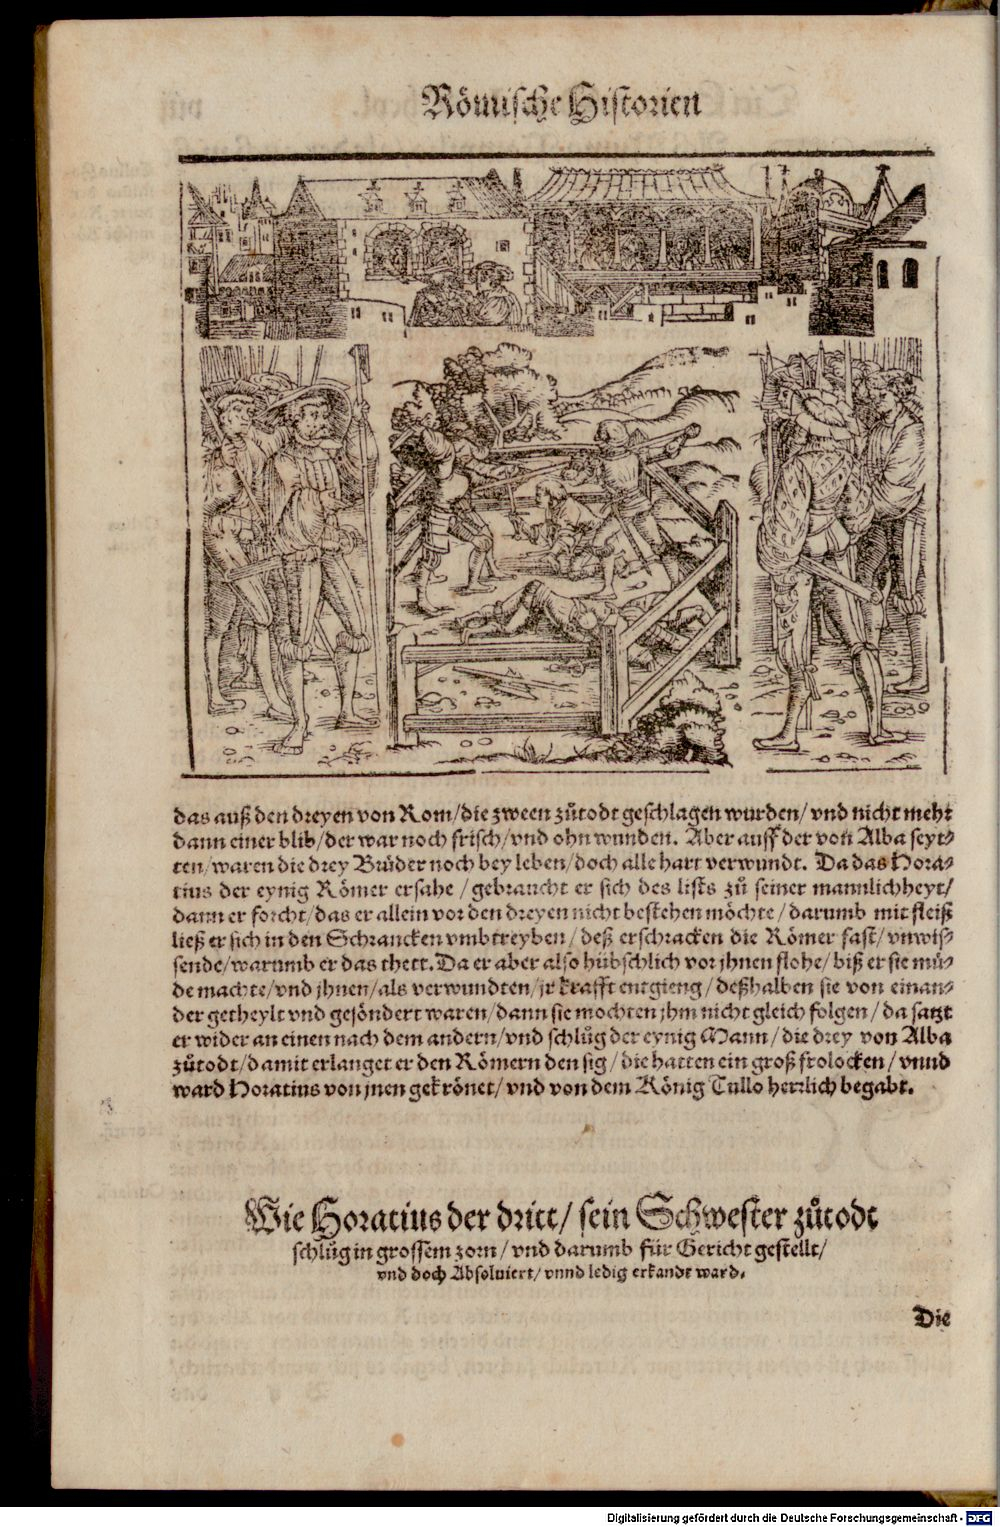 Römische Historien
das auß den dreyen von Rom/die zween zůtodt geschlagen wurden/ vnd nicht meht
dann einer blib/der war noch frisch/vnd ohn wunden. Aber auff der von Alba seyt-
ten/waren die drey Brüder noch bey leben/doch alle hart verwundt. Da das Hora-
tius der eynig Römer ersahe /gebraucht er sich des lists zů seiner mannlichheyt/
dann er forcht/das er allein vor den dreyen nicht bestehen möchte/darumb mit fleiß
ließ er sich in den Schrancken vmbtreyben/deß erschracken die Römer fast/vnwis-
sende/warumb er das thett. Da er aber also hübschlich vor jhnen flohe/biß er sie mü-
de machte/vnd jhnen/als verwundten/jr krafft entgieng/deßhalben sie von einan-
der getheylt vnd gesöndert waren/dann sie mochten jhm nicht gleich folgen/da satzt
er wider an einen nach dem andern/vnd schlůg der eynig Mann/die drey von Alba
zůtodt/damit erlanget er den Römern den sig/die hatten ein groß frolocken/vnnd
ward Horatius von jnen gekrönet/vnd von dem König Tullo herrlich begabt.
Wie Horatius der dritt/ sein Schwester zůtodt
schlůg in grossem zorn/vnd darumb für Gericht gestellt/
vnd doch Absoluiert/vnnd ledig erkandt ward.
Die
Digitalisierung gefördert durch die Deutsche Forschungsgemeinschaft - DFG